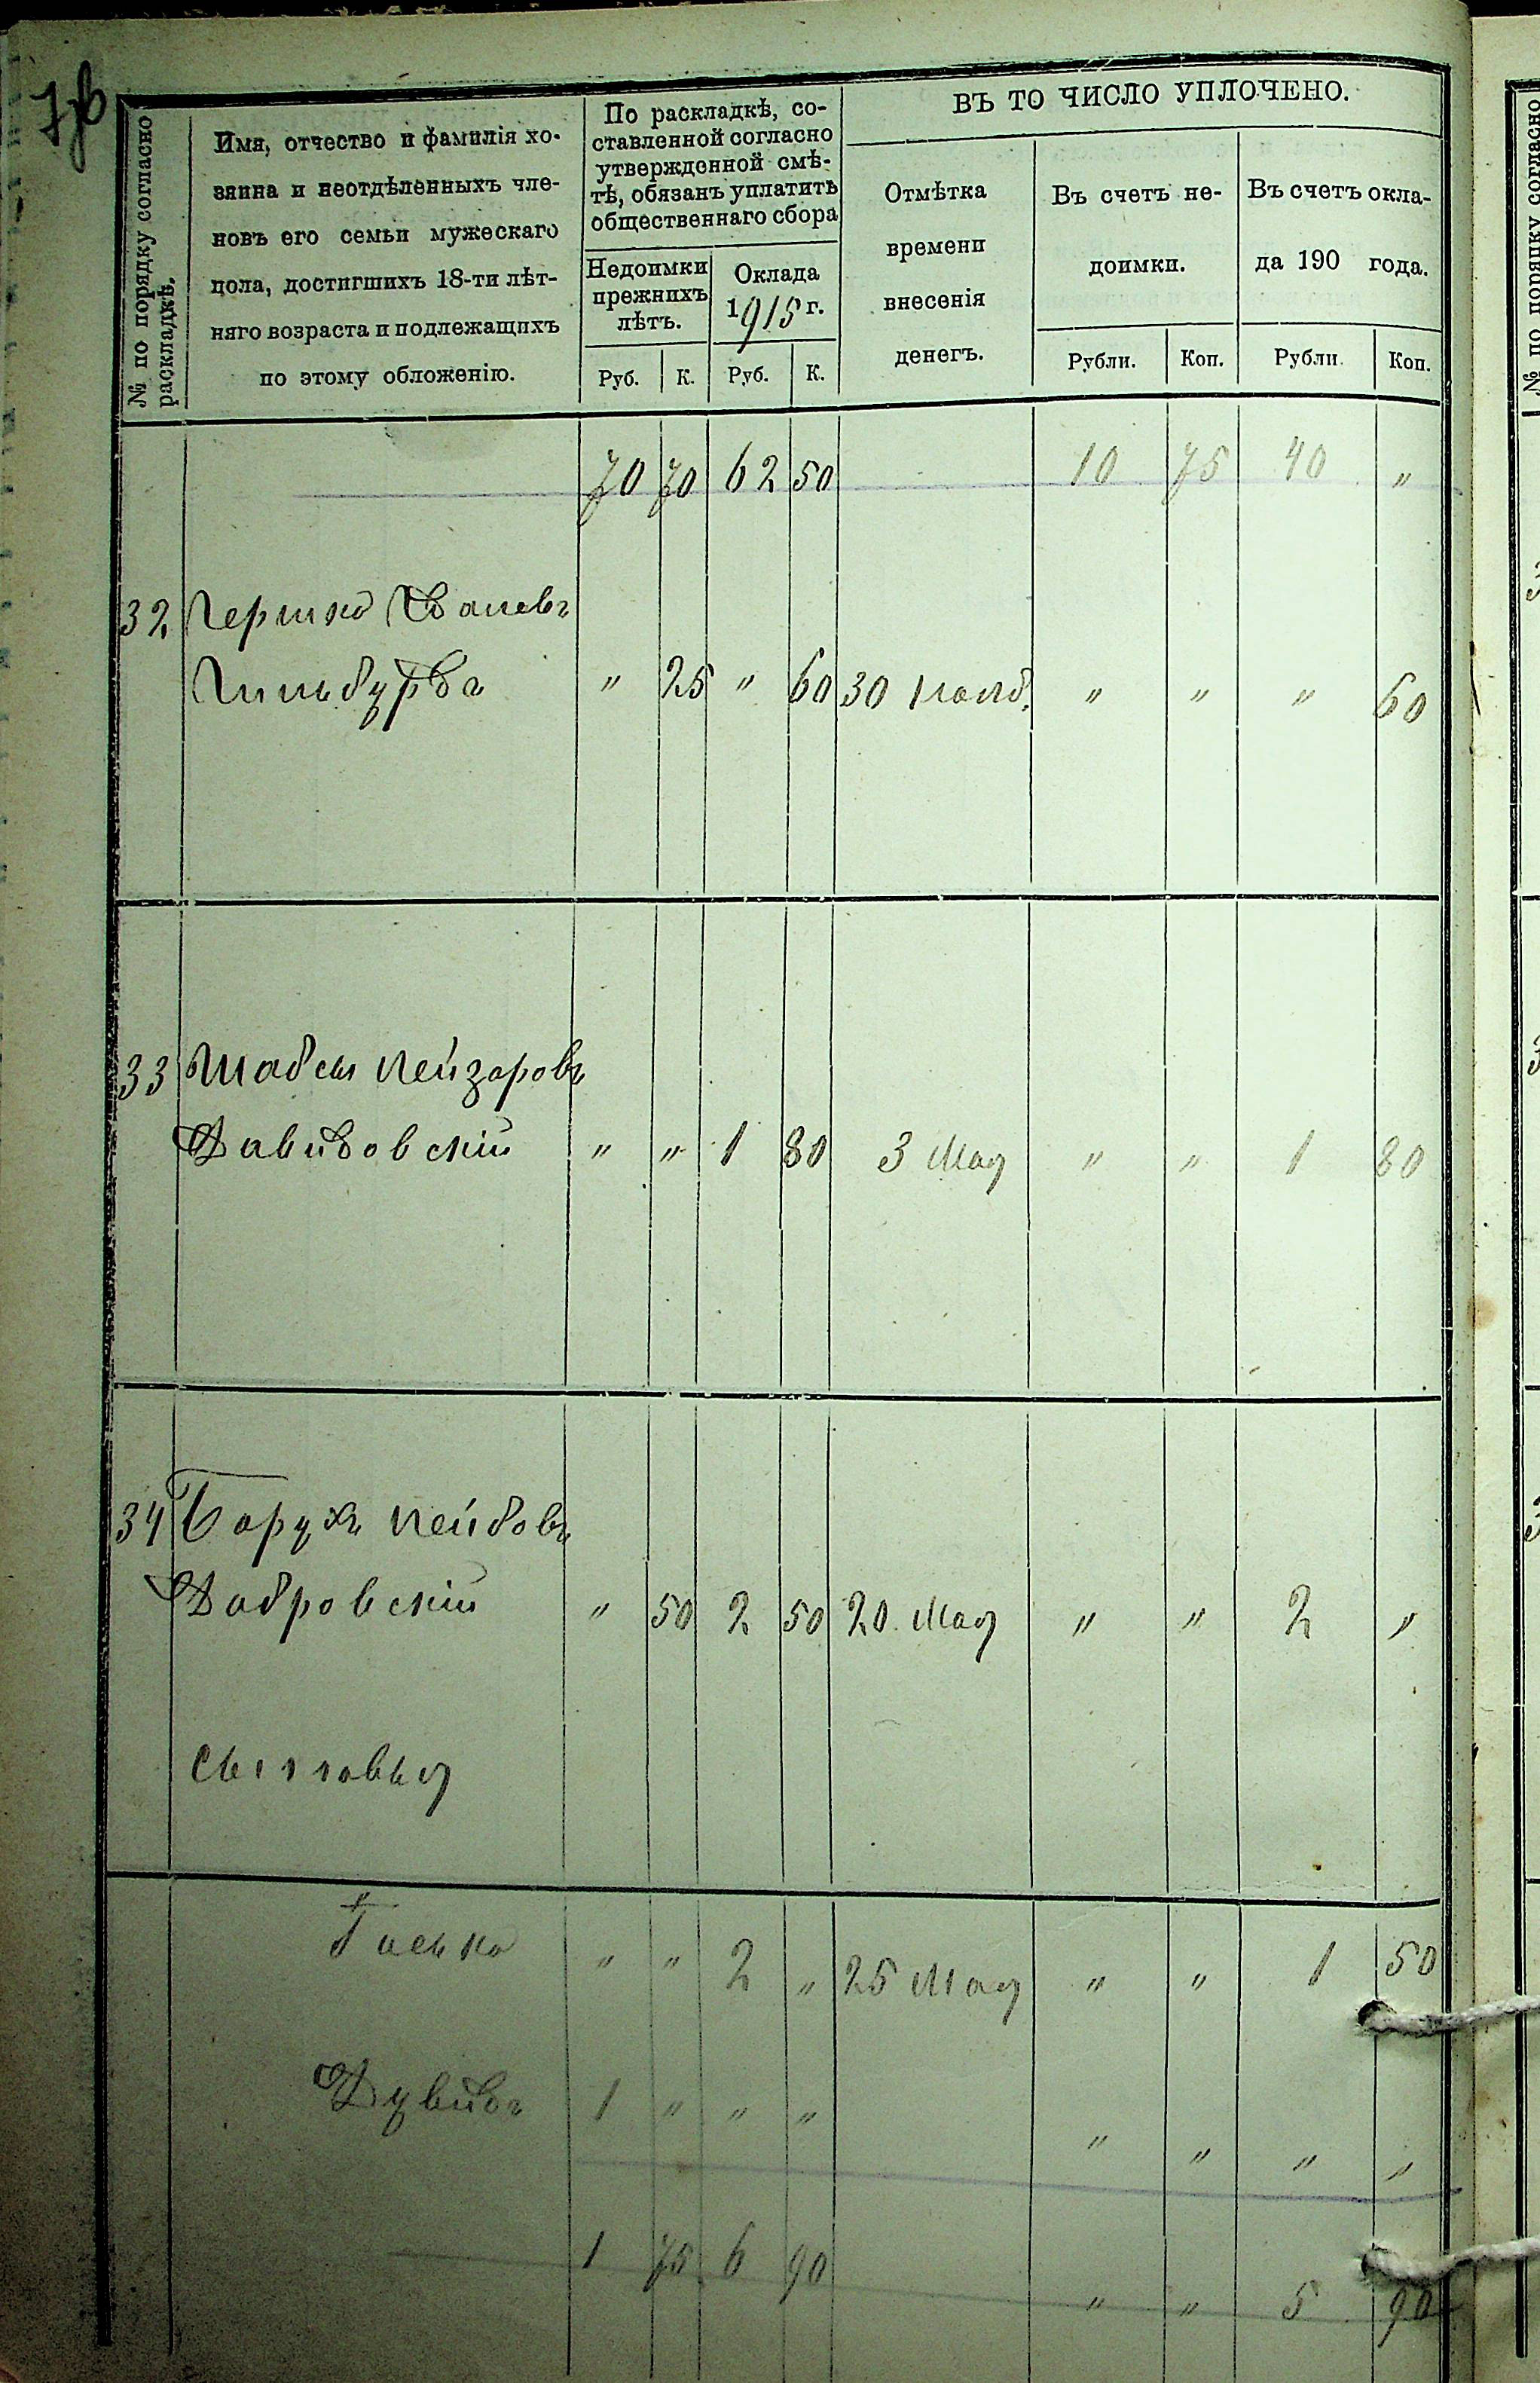 7об
№ по порядку согласно раскладкѣ.
Имя, отчество и фамилія хо-
зяина и неотдѣленныхъ чле-
новъ его семьи мужескаго
пола, достигшихъ 18-ти лѣт-
няго возраста и подлежащихъ
по этому обложенію.
По раскладкѣ, со-
ставленной согласно
утвержденной смѣ-
тѣ, обязанъ уплатить
общественнаго сбора
Недоимки
прежнихъ
лѣтъ.
Оклада
1915 г.
Руб. К. Руб. К.
ВЪ ТО ЧИСЛО УПЛОЧЕНО.
Отмѣтка
времени
внесенія
денегъ.
Въ счетъ не-
доимки.
Въ счетъ окла-
да 190 года.
Рубли. Коп. Рубли. Коп.
70 70 62 50 10 75 40 "
32 Гершко
" 25 " 60 30 " " " 60
33 Шабси Лейзаровъ
Давидовскій " " 1 80 3 Мая " " 1 80
34 Борухъ Лейбовъ
Домбровскій " 50 2 50 20 Мая " " 2 "
Сыновья
Гиенко " " 2 " 25 Мая " " 1 50
Дувидъ 1 " " " " " " "
1 75 6 90 " " 5 90
№ по порядку согласно